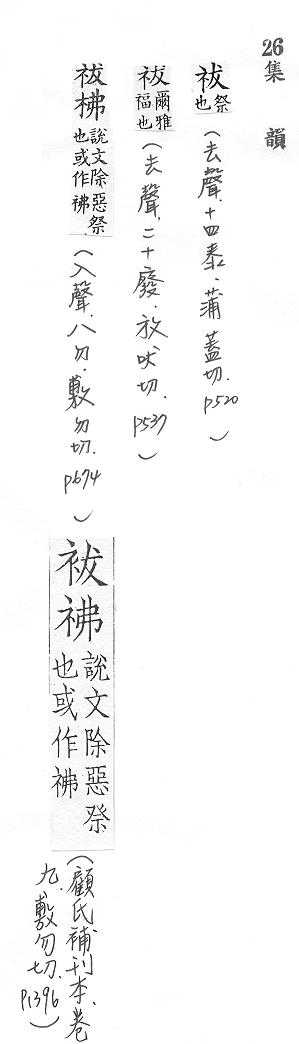 26集韻
祓 祭也 (去聲.十四泰.蒲蓋切.p520)
祓 爾雅福也 (去聲.二十廢.放吠切.p537)
祓 柫 說文除惡祭也或作祓 (入聲.八勿.敷勿切.p674)
祓 祓 說文除惡祭也或作祓 (顧氏補刊本.卷
九.敷勿切.p1396)